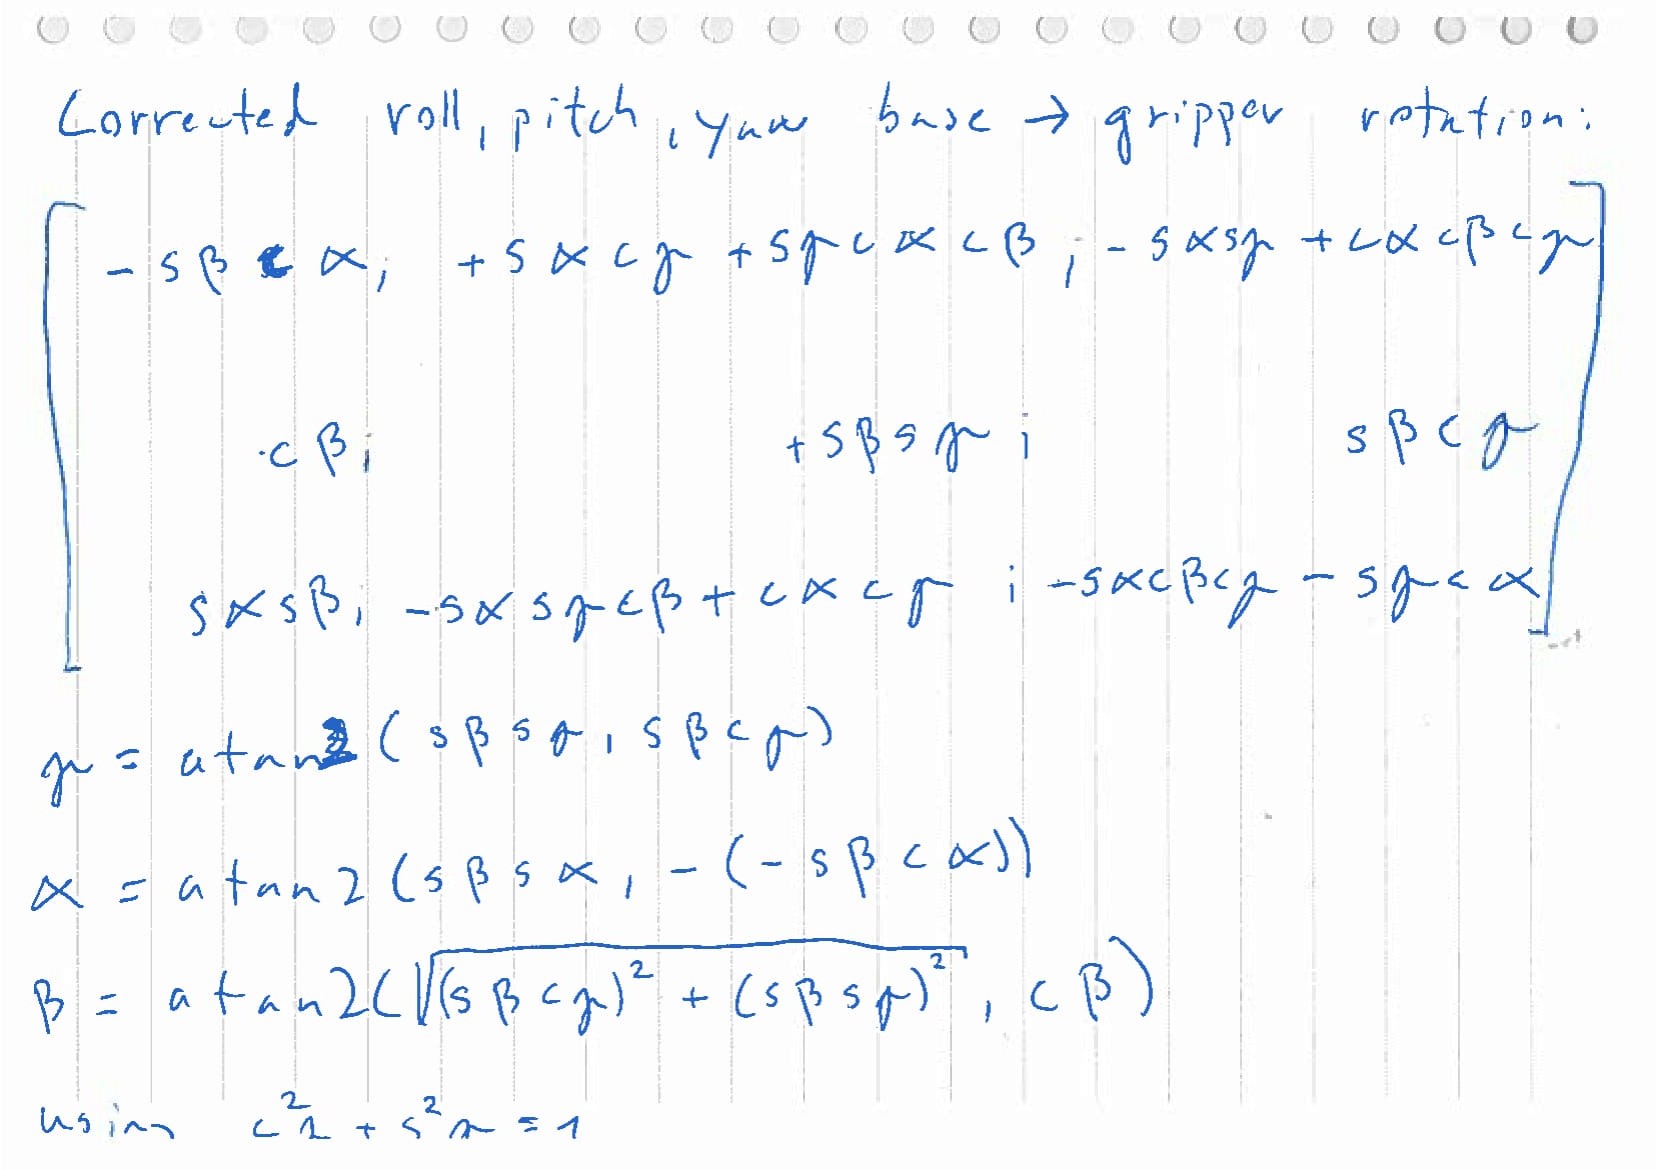 Corrected roll, pitch, yaw base → gripper rotation:
[ -sβcα; +sαcγ +sγcαcβ; -sαsγ +cαcβcγ
cβ; +sβsγ; sβcγ
sαsβ; -sαsγcβ + cαcγ; -sαcβcγ - sγcα ]
γ = atan2(sβsγ, sβcγ)
α = atan2(sβsα, -(-sβcα))
β = atan2(√((sβcγ)² + (sβsγ)²), cβ)
using c²γ + s²γ = 1